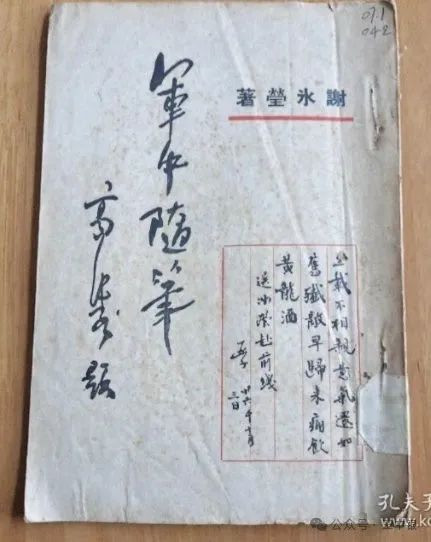 07.1
042
謝冰瑩著
軍中隨筆
高 題
三載不相親意氣還如
舊殲敵早歸來痛飲
黃龍酒
送冰瑩赴前線
廿六年十月
三日
孔夫子
公众号